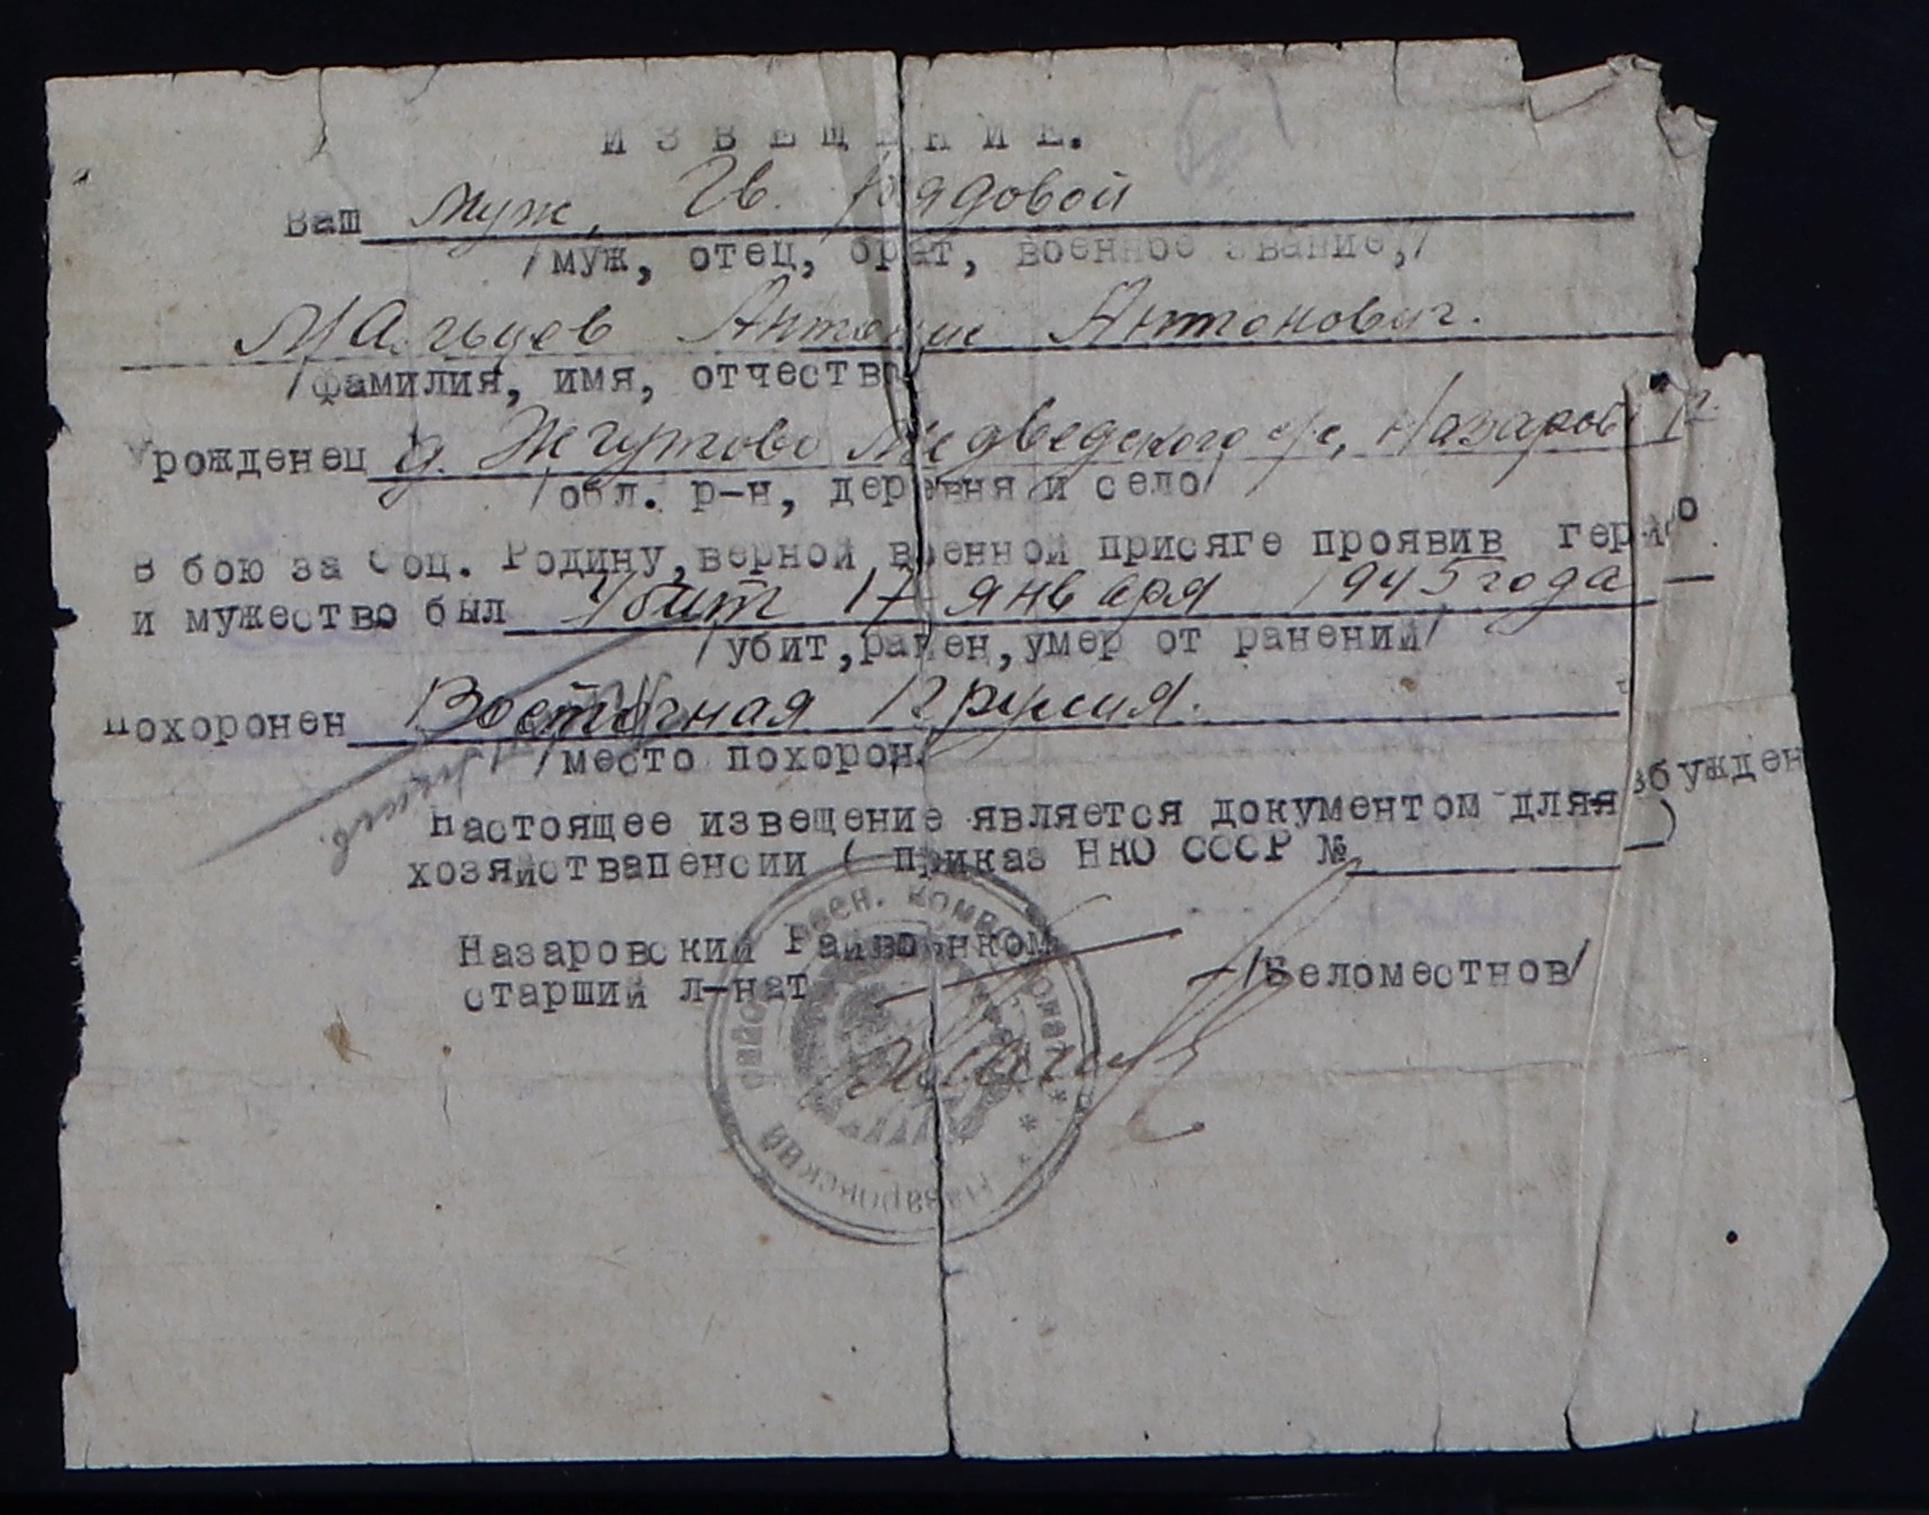 ИЗВЕЩЕНИЕ.
Ваш муж, Гв. Рядовой
/муж, отец, брат, военное звание,/
Мальцев Антон Антонович.
/фамилия, имя, отчество/
Урожденец д. Жгутово Медведского с/с, Назаров
/обл. р-н, деревня и село/
В бою за Соц. Родину, верной военной присяге проявив геро
и мужество был Убит 17 января 1945 года
/убит, ранен, умер от ранений/
Похоронен Восточная Пруссия.
/место похорон/
Настоящее извещение является документом для возбужден
хозяйствапенсии ( приказ НКО СССР № )
Назаровский Райвоенком
старший л-нат /Беломестнов/
Назаровский район. воен. комиссариат